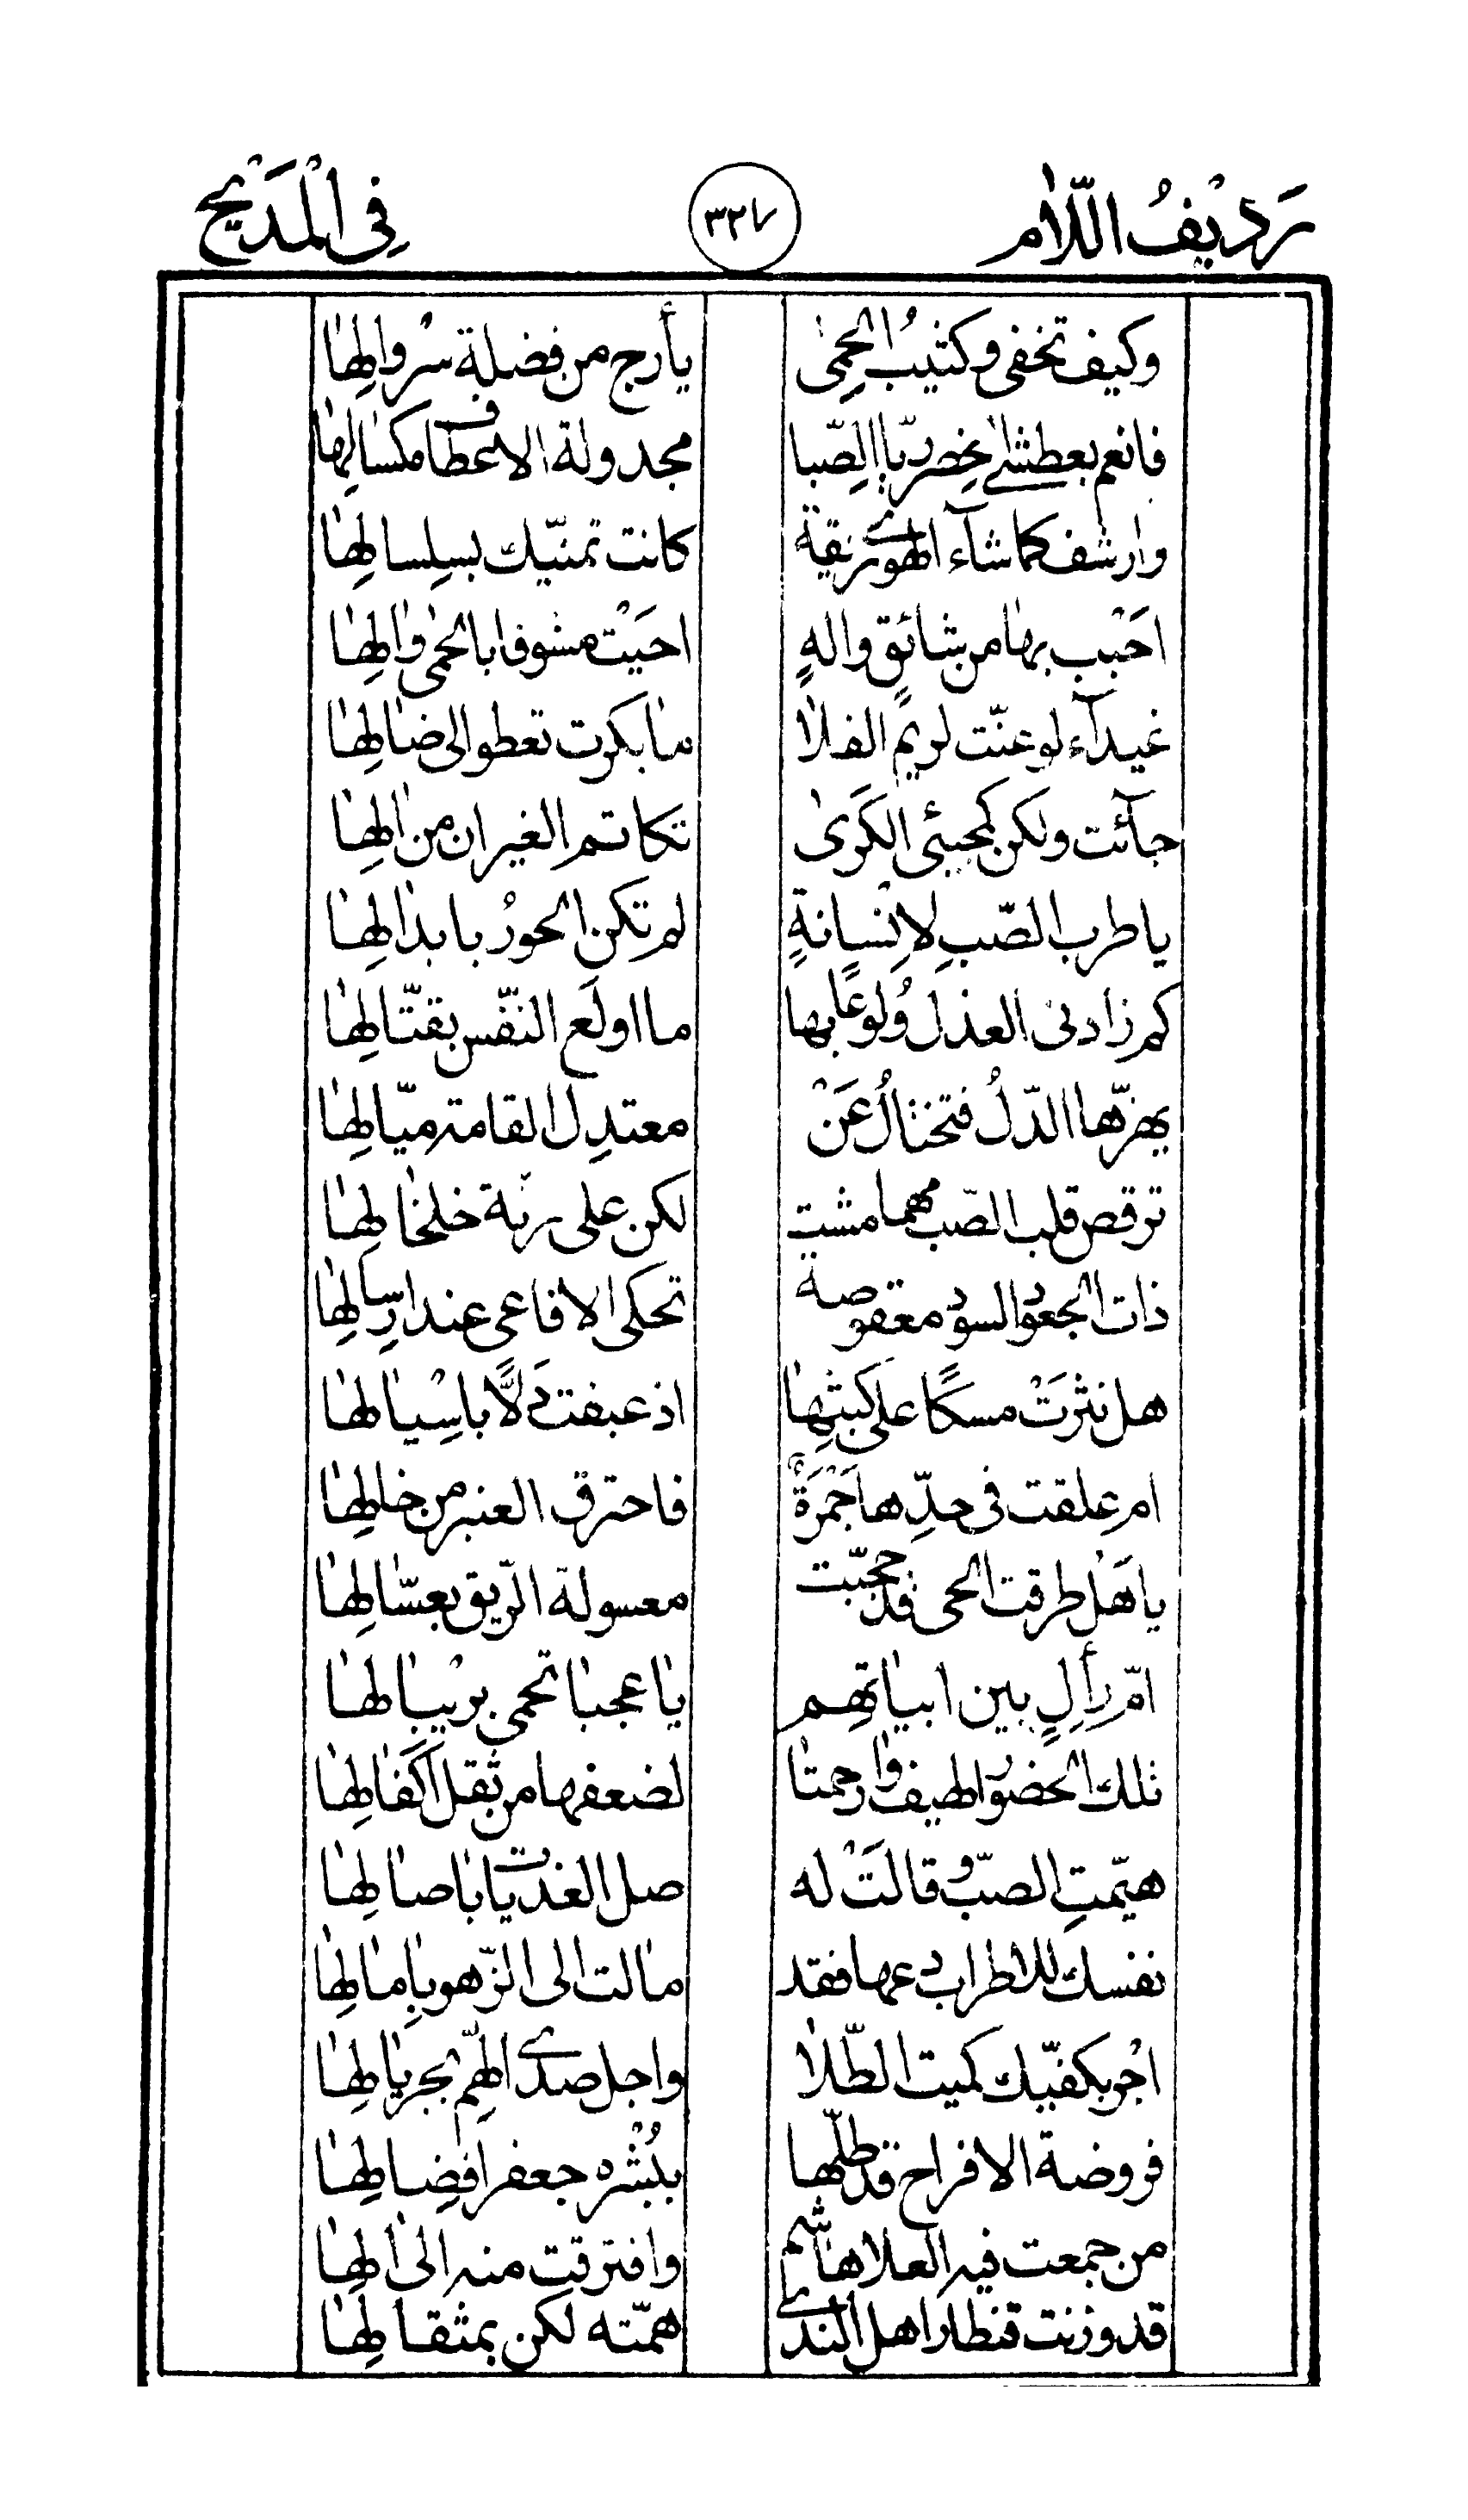 رَدِيْفُ اللّام ٣٣٧ فِي الْمَدَيْحِ
وكيف تخفى وكثيبُ الحِمىٰ يأرج من فضلة سرْوالِهٰا
فانعم بعطشىٰ خصر ريّا الصِّبا مجدولة الاعطاف مكسٰالِهٰا
وارشف كما شآء الهوى ريقة كانت تمنّيك بسِلسالِهٰا
احَبْب بهٰا من شائقٍ والهٍ احيَيْت مشوقا بالحمىٰ وٰالِهٰا
غيدآء لو عنّت لريم الفلاٰ مٰا بكرت تعطو الى ضٰالِهٰا
جآئت ولكن كمجيئى الكَرَىٰ تكاتم الغيران من اٰلِهٰا
يا طرب الصّبِ لاِنْسانةٍ لم تكن الحورُ بابدٰالِهٰا
كم زادنى العذلَ وُلوعًا بها ما اولَع النّفس بقتّالِهٰا
يهزّها الدّلُ فتختالُ عَنْ معتدِل القامة ميّالِهٰا
ترقص قلب الصّب مهما مشت لكن على رنّة خلخٰالِهٰا
ذات الجعود السود معقوصة تحكى الافاعى عند ارِسٰالِهٰا
هل نثرَتْ مسكًا عَلى كثبِهٰا اذ عبقت دَلًّا باسِْبٰالهٰا
ام علقت فى خدِّها جَمْرَةٌ فاحترق العنبر من خالِهٰا
يا هَل طرقت الحى قد حجّبت معسولة الرّيق بعسّالِهٰا
امّ رأٰلٍ بين ابياتهِم يٰا عجبٰا تحمى برئبٰالهٰا
تلك الخصور الهيف وٰا رحمتٰا لضعفها من ثِقل اَكَفٰالِهٰا
هيّمتِ الصبّ وقالَتْ له صل الغدايا باٰصٰالِهٰا
نفسك للاطراب دعها فقد مٰالت الى الزّهو باِمٰالِهٰا
اجْرِ بكفّيك كميت الطّلاٰ واجل صدى الهِمّ بجريالِهٰا
فروضة الافراح قد طلّها ببُشْره جعفر افضِالِهٰا
من جمعت فيه العلا هاشم وافترقت منه الىٰ اٰلِهٰا
قد وزنت قنطار اهل الندى همّته لكن بمثقالِهٰا